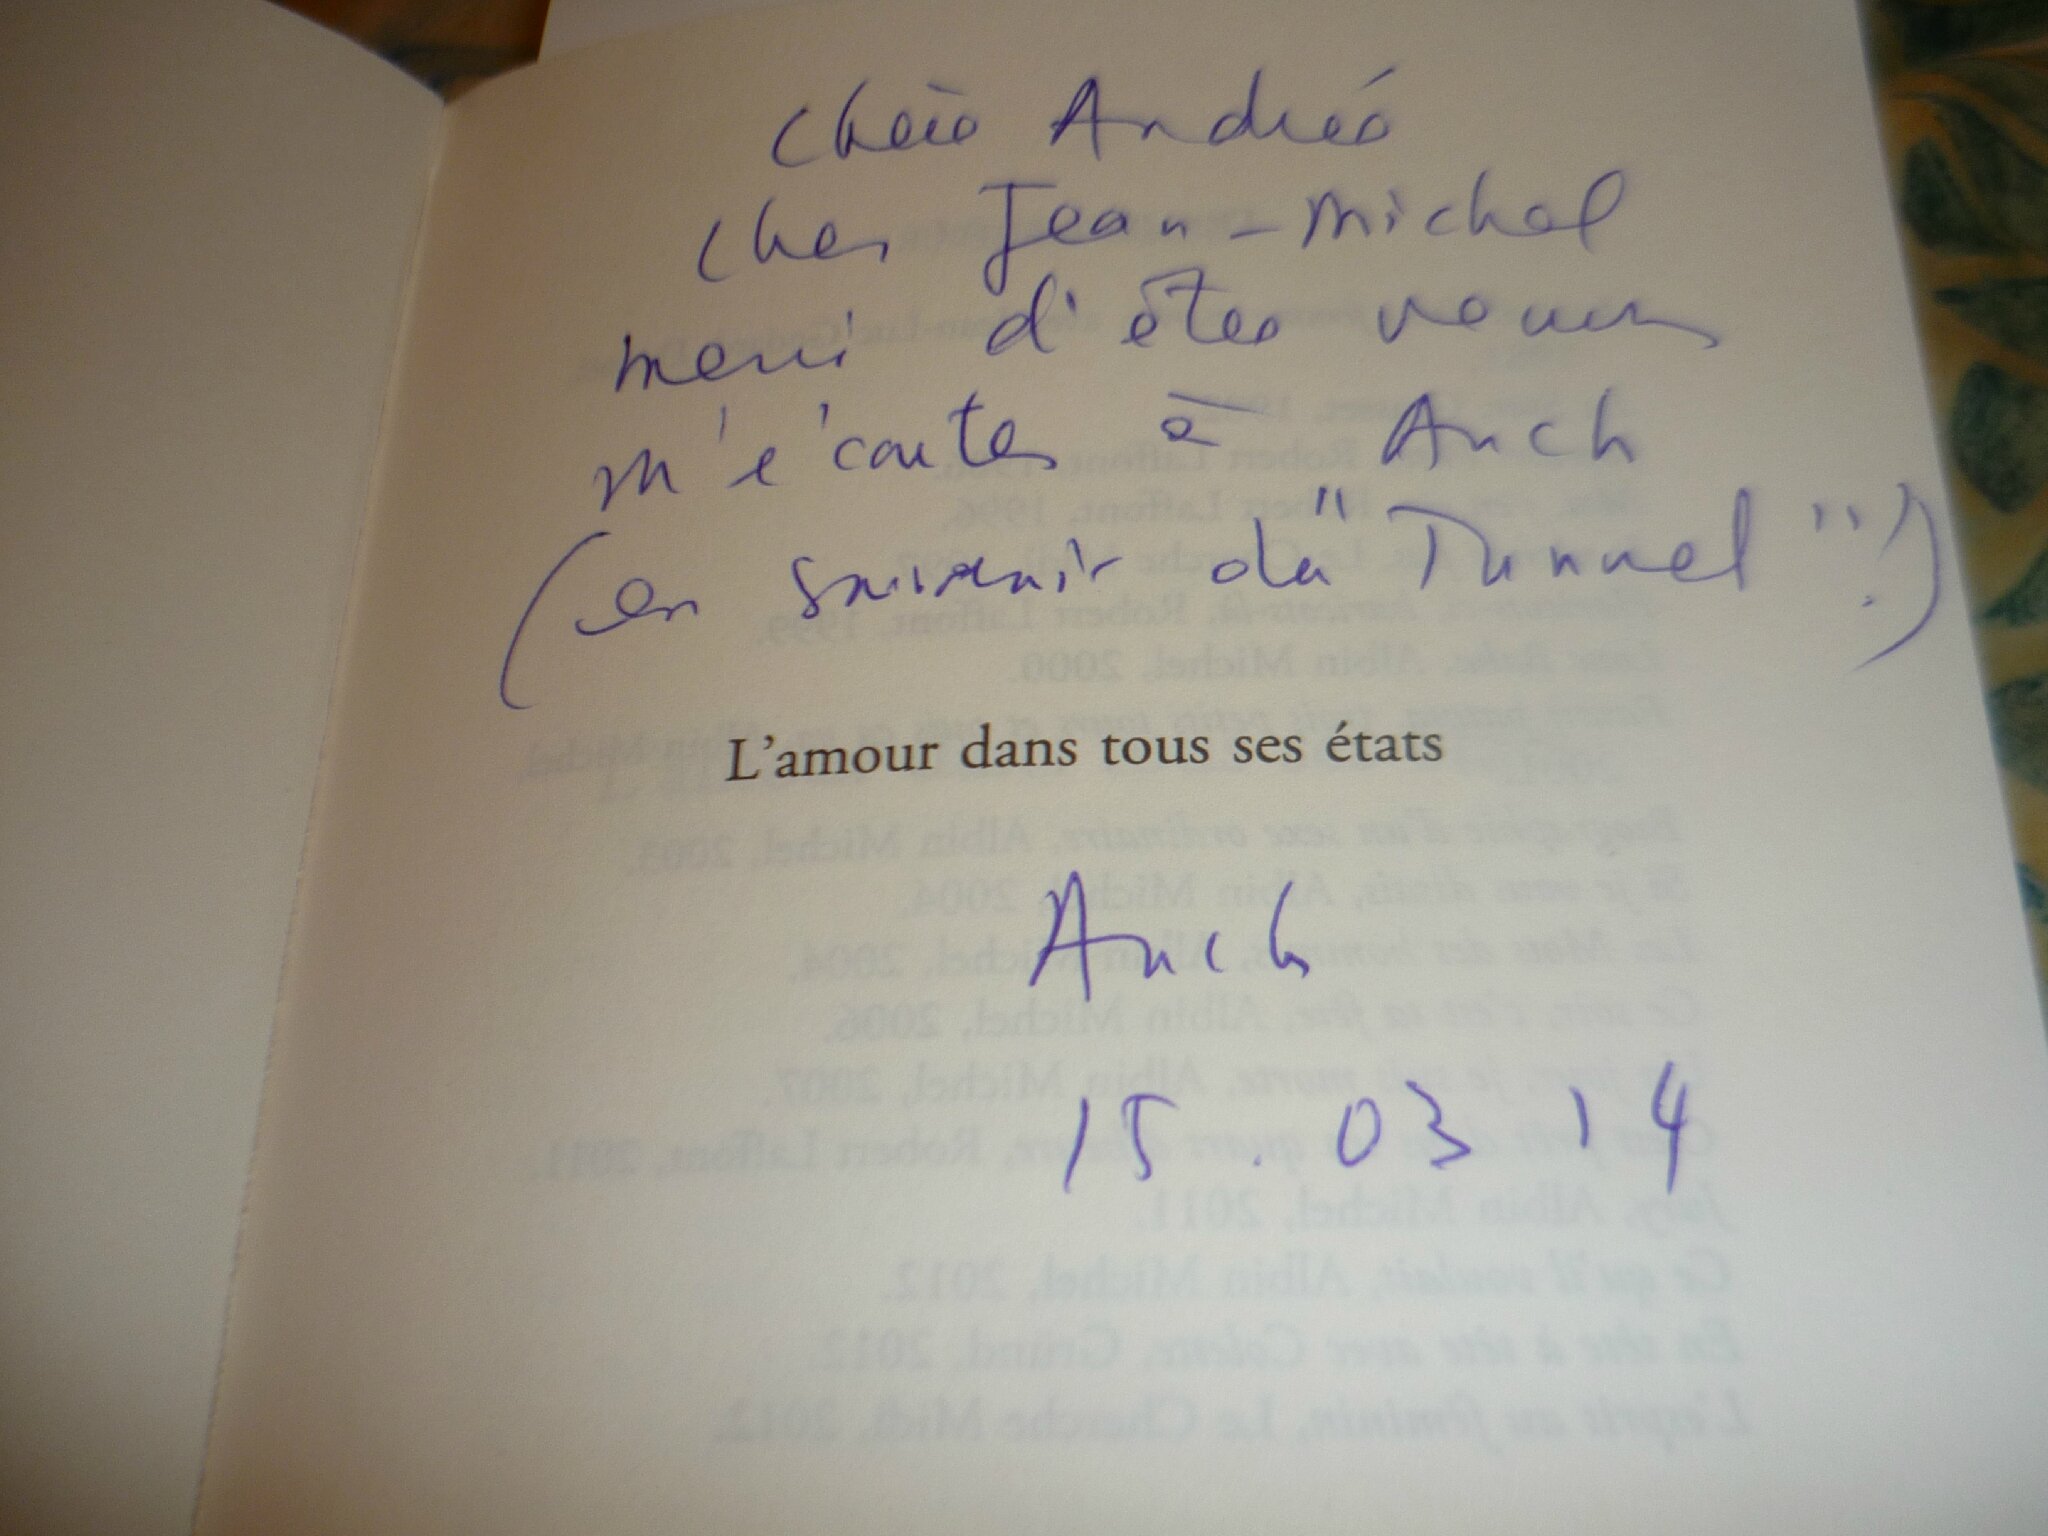 Chère Andrée
cher Jean-Michel
merci d'être venus
m'écouter à Auch
(en souvenir du "Tunnel"!)
L'amour dans tous ses états
Auch
15.03.14